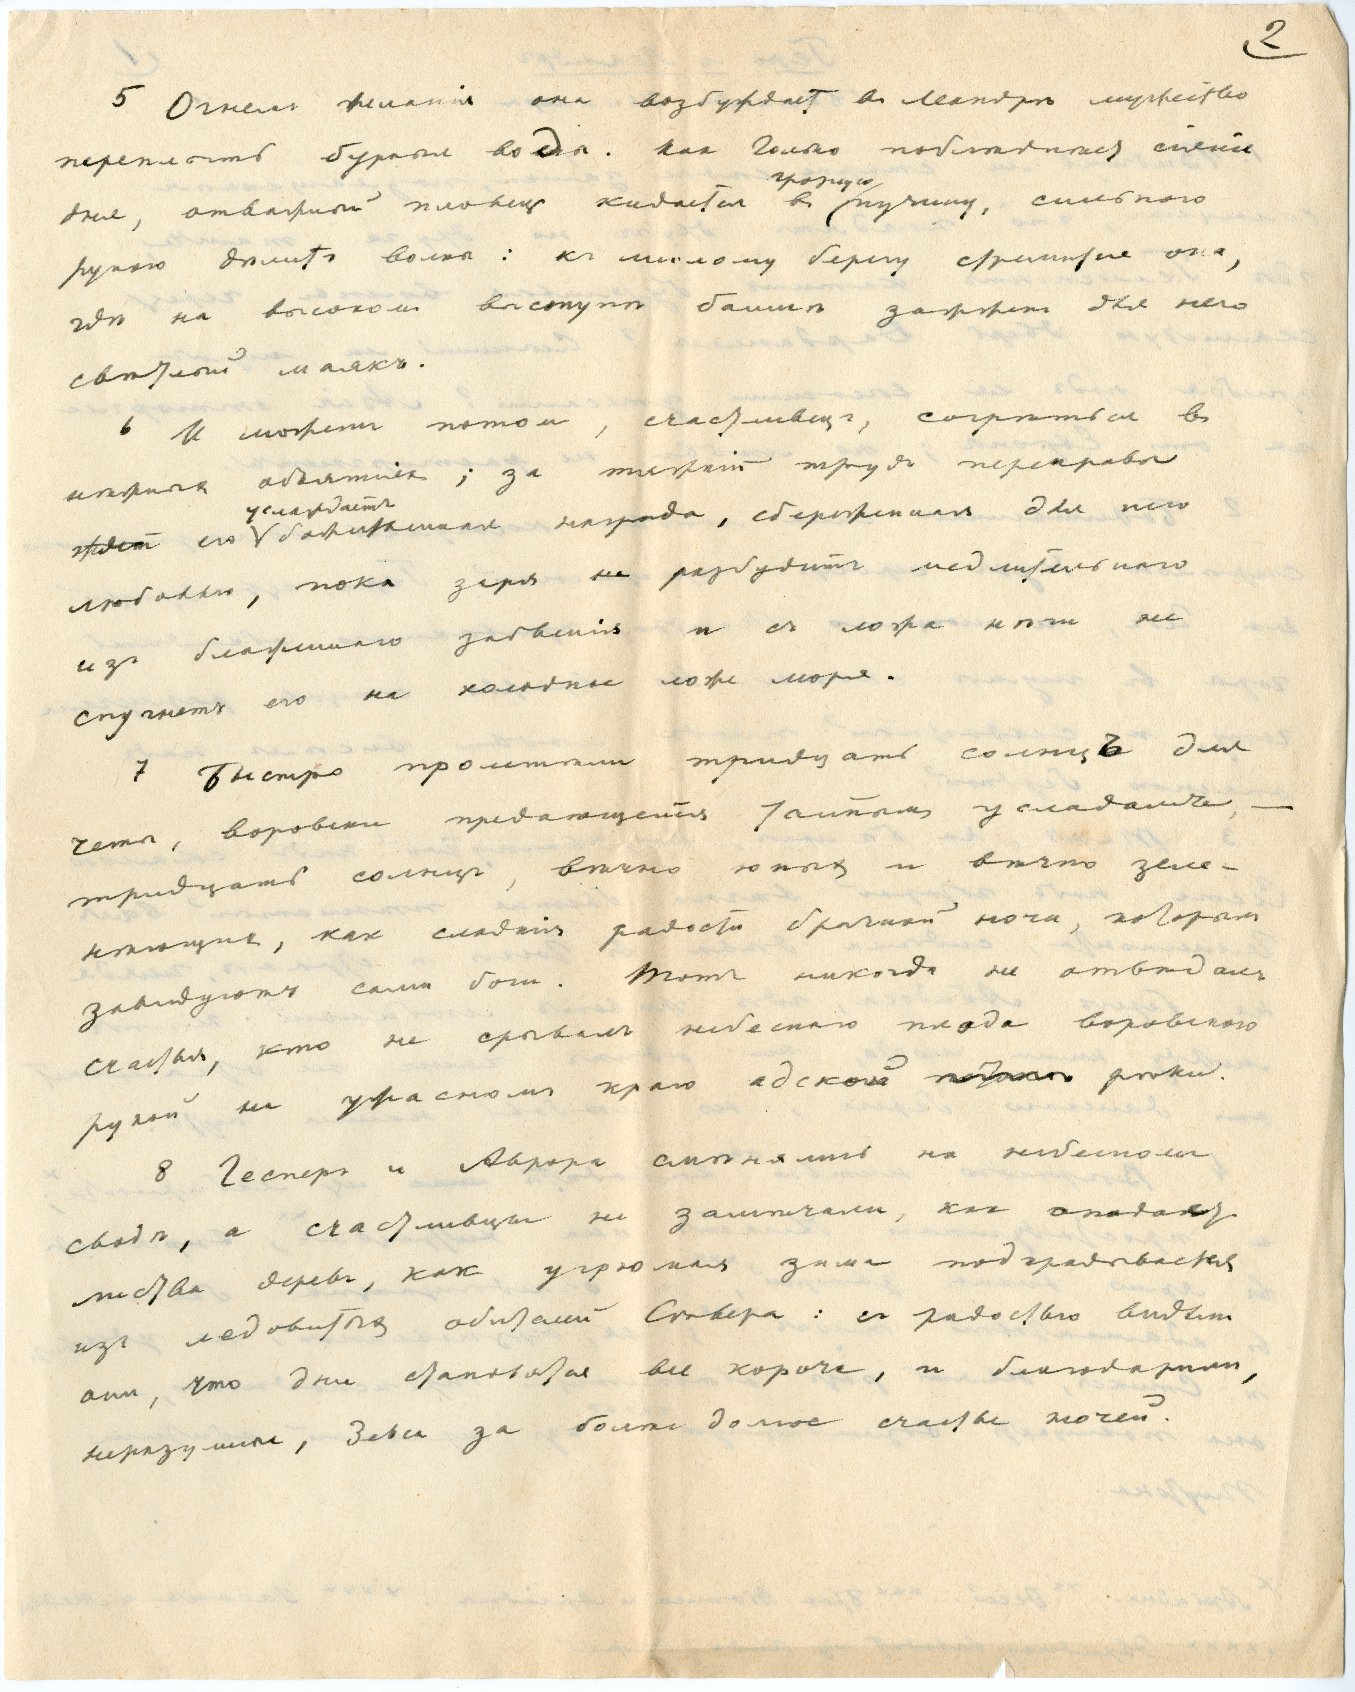 2
5 Огнемъ желанія она возбуждаетъ въ Леандрѣ мужество
переплыть бурныя воды. Какъ только поблѣднѣетъ сіяніе
дня, отважный пловецъ кидается въ грозную пучину, сильною
рукою дѣлитъ волны: къ милому берегу стремится онъ,
гдѣ на высокомъ выступѣ башни зажженъ для него
свѣтлый маякъ.
6 И можетъ потомъ, счастливецъ, согрѣться въ
нѣжныхъ объятіяхъ; за тяжкій трудъ переправы
ждет его услаждаетъ божественная награда, сбереженная для него
любовью, пока заря не разбудитъ медлительнаго
изъ блаженнаго забвенія и съ ложа нѣги не
спугнетъ его на холодное ложе моря.
7 Быстро пролетѣли тридцать солнцъ для
четы, воровски предающейся тайнымъ усладамъ, —
тридцать солнцъ, вѣчно юныхъ и вѣчно зеле-
нѣющихъ, какъ сладкія радости брачной ночи, которымъ
завидуютъ сами боги. Тотъ никогда не отвѣдалъ
счастья, кто не срывалъ небеснаго плода воровскою
рукой на ужасномъ краю адской рѣки.
8 Гесперъ и Аврора смѣнялись на небесномъ
сводѣ, а счастливцы не замѣчали, какъ опадаетъ
листва деревъ, какъ угрюмая зима подкрадывается
изъ ледовитыхъ обителей Сѣвера: съ радостью видѣли
они, что дни становятся все короче, и благодарили,
неразумные, Зевса за болѣе долгое счастье ночей.